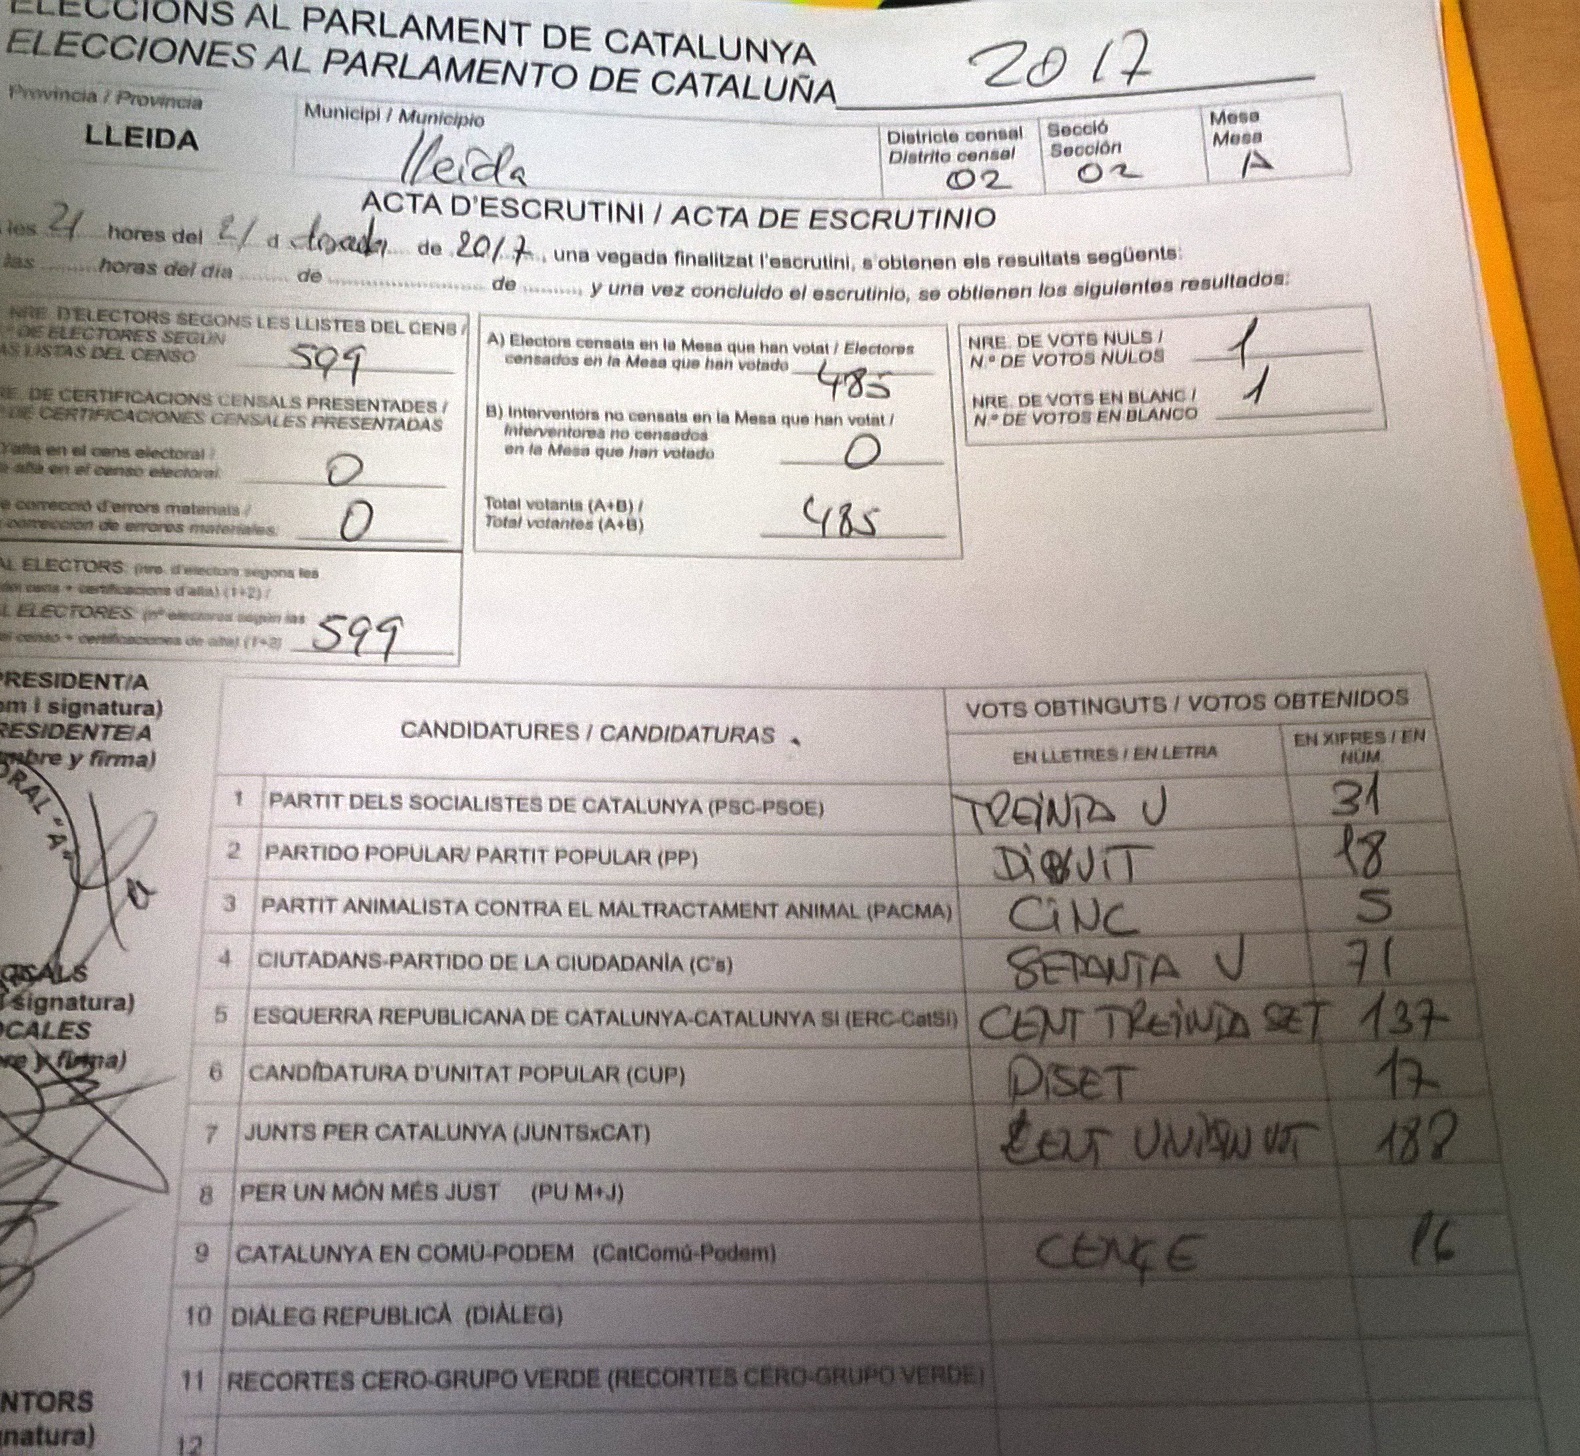 ELECCIONS AL PARLAMENT DE CATALUNYA
ELECCIONES AL PARLAMENTO DE CATALUÑA 2017
Província / Provincia
LLEIDA
Municipi / Municipio
lleida
Districte censal
Distrito censal
02
Secció
Sección
02
Mesa
Mesa
A
ACTA D'ESCRUTINI / ACTA DE ESCRUTINIO
les 21 hores del 21 d de 2017, una vegada finalitzat l'escrutini, s'obtenen els resultats següents:
las ........ horas del día ........ de ........ de ........, y una vez concluido el escrutinio, se obtienen los siguientes resultados:
NRE. D'ELECTORS SEGONS LES LLISTES DEL CENS /
DE ELECTORES SEGÚN
AS LISTAS DEL CENSO 599
DE CERTIFICACIONS CENSALS PRESENTADES /
DE CERTIFICACIONES CENSALES PRESENTADAS
alta en el cens electoral /
alta en el censo electoral. 0
correcció d'errors materials /
corrección de errores materiales. 0
ELECTORS: (nre. d'electors segons les
cens + certificacions d'alta) (1+2) /
ELECTORES: (nº electores según las
censo + certificaciones de alta) (1+2) 599
A) Electors censats en la Mesa que han votat / Electores
censados en la Mesa que han votado 485
B) Interventors no censats en la Mesa que han votat /
Interventores no censados
en la Mesa que han votado 0
Total votants (A+B) /
Total votantes (A+B) 485
NRE. DE VOTS NULS /
N.º DE VOTOS NULOS 1
NRE. DE VOTS EN BLANC /
N.º DE VOTOS EN BLANCO 1
PRESIDENT/A
om i signatura)
RESIDENTE/A
mbre y firma)
ORAL "A"
OCALS
signatura)
OCALES
re y firma)
NTORS
natura)
CANDIDATURES / CANDIDATURAS
VOTS OBTINGUTS / VOTOS OBTENIDOS
EN LLETRES / EN LETRA
EN XIFRES / EN
NÚM.
1 PARTIT DELS SOCIALISTES DE CATALUNYA (PSC-PSOE) TREINTA U 31
2 PARTIDO POPULAR/ PARTIT POPULAR (PP) DIVUIT 18
3 PARTIT ANIMALISTA CONTRA EL MALTRACTAMENT ANIMAL (PACMA) CINC 5
4 CIUTADANS-PARTIDO DE LA CIUDADANÍA (C's) SETANTA U 71
5 ESQUERRA REPUBLICANA DE CATALUNYA-CATALUNYA SI (ERC-CatSí) CENT TREINTA SET 137
6 CANDIDATURA D'UNITAT POPULAR (CUP) DISET 17
7 JUNTS PER CATALUNYA (JUNTSxCAT) CENT 188
8 PER UN MÓN MÉS JUST (PU M+J)
9 CATALUNYA EN COMÚ-PODEM (CatComú-Podem) 16
10 DIÀLEG REPUBLICÀ (DIÀLEG)
11 RECORTES CERO-GRUPO VERDE (RECORTES CERO-GRUPO VERDE)
12